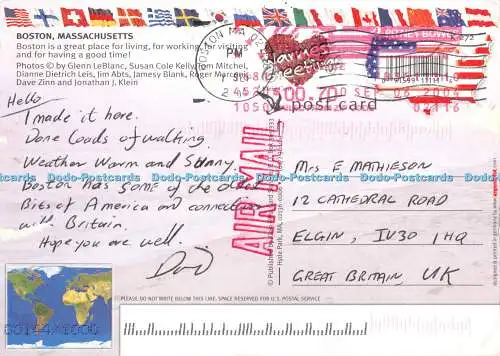 BOSTON, MASSACHUSETTS
Boston is a great place for living, for working, for visiting
and for having a good time!
Photos © by Glenn LeBlanc, Susan Cole Kelly, Tom Mitchel,
Dianne Dietrich Leis, Jim Abts, Jamesy Blank, Roger
Dave Zinn and Jonathan J. Klein
BOSTON MA
PM
2
Greetings
PITNEY BOWES
00.70
SEP 06 2004
02116
post card
Hello
I made it here.
Done loads of walking.
Weather Warm and Sunny.
Boston has some of the oldest
Bits of America and connection
with Britain.
Hope you are well.
Dad
AIR MAIL
Mrs E MATHIESON
12 CATHEDRAL ROAD
ELGIN, IV30 1HQ
GREAT BRITAIN, UK
Dodo-Postcards Dodo-Postcards Dodo-Postcards Dodo-Postcards Dodo-Postcards
PLEASE DO NOT WRITE BELOW THIS LINE. SPACE RESERVED FOR U.S. POSTAL SERVICE.
00144/1000